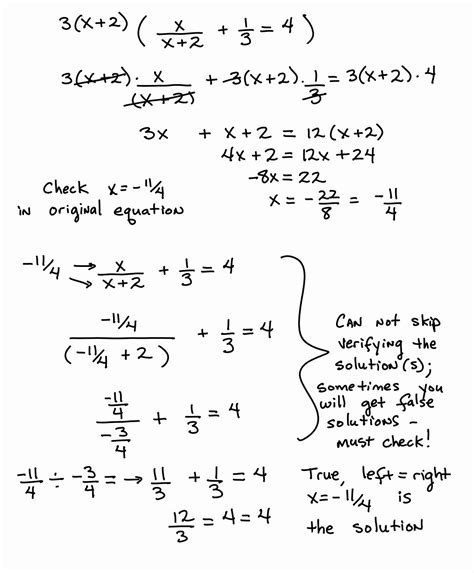 3(x+2) ( x/(x+2) + 1/3 = 4 )
3(x+2) · x/(x+2) + 3(x+2) · 1/3 = 3(x+2) · 4
3x + x+2 = 12(x+2)
4x+2 = 12x+24
-8x = 22
x = -22/8 = -11/4
Check x = -11/4
in original equation
-11/4 → x/(x+2) + 1/3 = 4
(-11/4)/(-11/4 + 2) + 1/3 = 4
(-11/4)/(-3/4) + 1/3 = 4
-11/4 ÷ -3/4 = → 11/3 + 1/3 = 4
12/3 = 4 = 4
Can not skip
verifying the
solution(s);
sometimes you
will get false
solutions –
must check!
True, left = right
x = -11/4 is
the solution